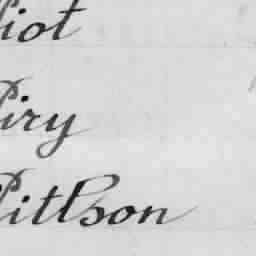 iot
Piry
Pittson